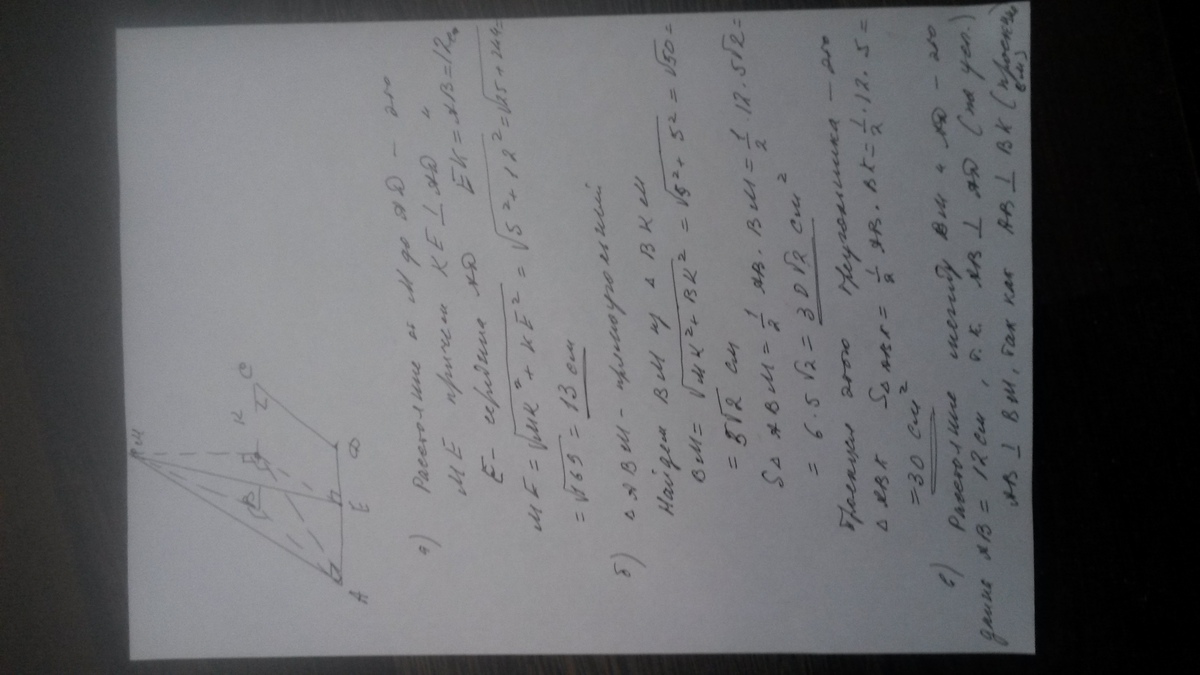 M
B
K
C
A
E
D
а) Расстояние от M до AD – это
ME причем KE ⊥ AD,
E – середина AD EK = AB = 12 см
ME = √MK² + KE² = √5² + 12² = √25 + 144 =
= √169 = 13 см
б) △ ABM – прямоугольный
Найдем BM из △ BKM
BM = √MK² + BK² = √5² + 5² = √50 =
= 5√2 см
S△ ABM = 1/2 AB · BM = 1/2 · 12 · 5√2 =
= 6 · 5√2 = 30√2 см²
Проекция этого треугольника – это
△ ABK S△ABK = 1/2 AB · BK = 1/2 · 12 · 5 =
= 30 см²
в) Расстояние между BM и AD – это
длина AB = 12 см, т.к. AB ⊥ AD (по усл.)
AB ⊥ BM, так как AB ⊥ BK (проекция BM)